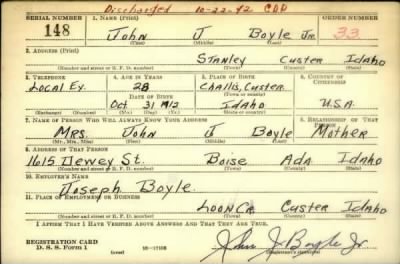 Discharged 10-22-42 CDD
SERIAL NUMBER 1. NAME (Print) ORDER NUMBER
148 John J Boyle Jr. 33
(First) (Middle) (Last)
2. ADDRESS (Print)
Stanley Custer Idaho
(Number and street or R. F. D. number) (Town) (County) (State)
3. TELEPHONE 4. AGE IN YEARS 5. PLACE OF BIRTH 6. COUNTRY OF CITIZENSHIP
Local Ex. 28 Challis, Custer
DATE OF BIRTH (Town or county)
Oct 31 1912 Idaho U.S.A.
(Exchange) (Number) (Mo.) (Day) (Yr.) (State or country)
7. NAME OF PERSON WHO WILL ALWAYS KNOW YOUR ADDRESS 8. RELATIONSHIP OF THAT PERSON
Mrs. John J Boyle Mother
(Mr., Mrs., Miss) (First) (Middle) (Last)
9. ADDRESS OF THAT PERSON
1615 Dewey St. Boise Ada Idaho
(Number and street or R. F. D. number) (Town) (County) (State)
10. EMPLOYER'S NAME
Joseph Boyle.
11. PLACE OF EMPLOYMENT OR BUSINESS
Loon Cr Custer Idaho
(Number and street or R. F. D. number) (Town) (County) (State)
I AFFIRM THAT I HAVE VERIFIED ABOVE ANSWERS AND THAT THEY ARE TRUE.
REGISTRATION CARD
D. S. S. Form 1 (over) 16—17105 John J. Boyle Jr